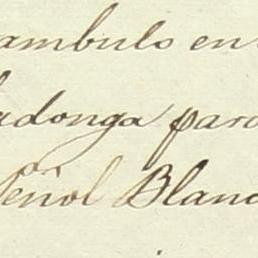 ambulo en
adonga para
Peñol Blanc